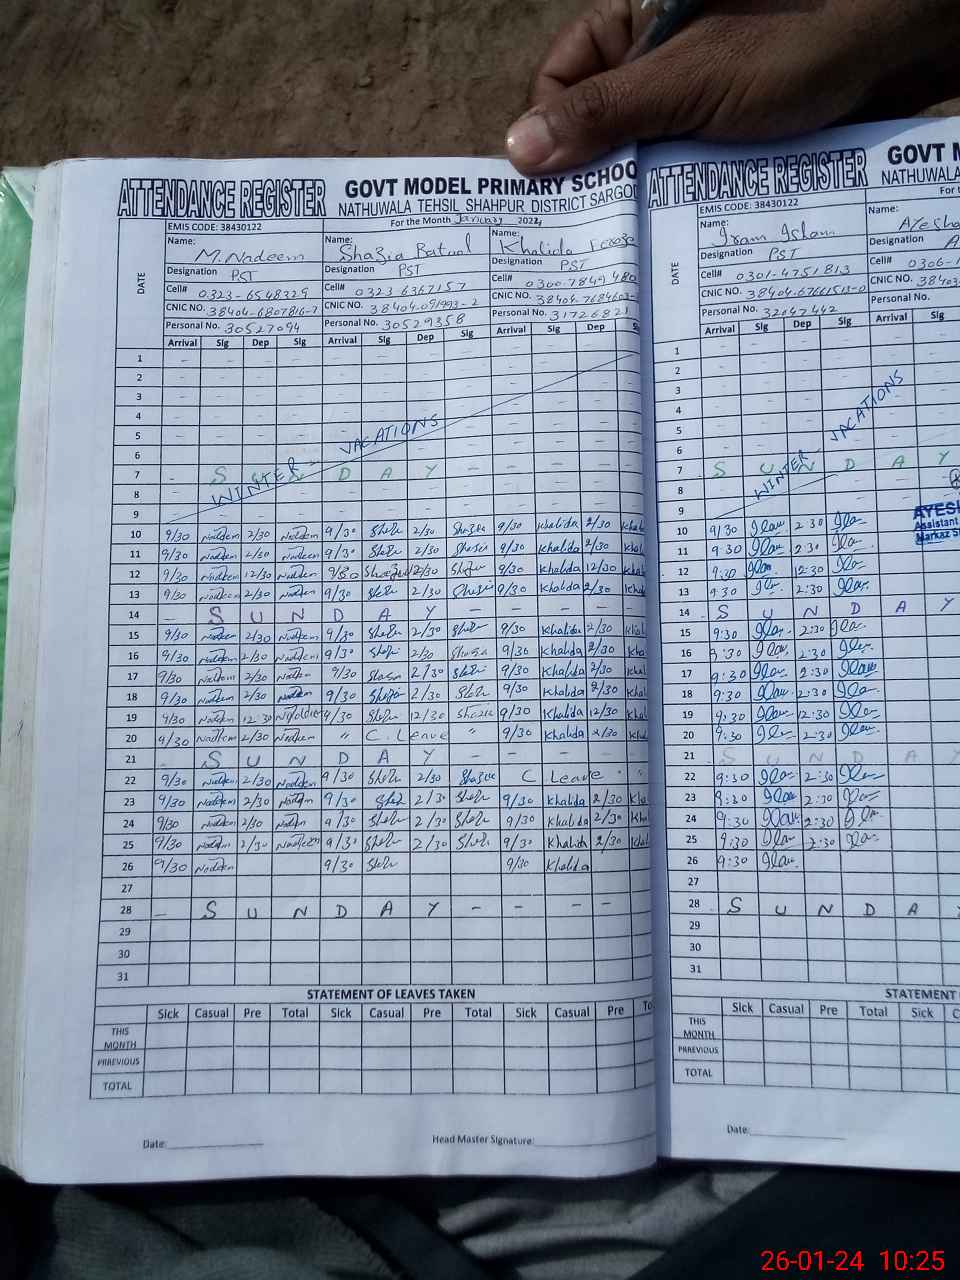 ATTENDANCE REGISTER GOVT MODEL PRIMARY SCHOO
NATHUWALA TEHSIL SHAHPUR DISTRICT SARGOD
EMIS CODE: 38430122 For the Month January 2024
Name: M.Nadeem Name: Shazia Batool Name: Khalida Feroze
Designation PST Designation PST Designation PST
Cell# 0323-6548329 Cell# 0323-6367157 Cell# 0300-7849480
CNIC NO. 38404-6807816-7 CNIC NO. 38404-091993-2 CNIC NO. 38404-7684603-
Personal No. 30527094 Personal No. 30529358 Personal No. 31726821
DATE Arrival Sig Dep Sig Arrival Sig Dep Sig Arrival Sig Dep
1 - - - - - - - - - - -
2 - - - - - - - - - - -
3 - - - - - - - - - - -
4 - - - - - - - - - - -
5 - - - - - - - - - - -
6
WINTER VACATIONS
7 - S U N D A Y
8
9
10 9/30 Nadeem 2/30 Nadeem 9/30 2/30 Shazia 9/30 Khalida 2/30 Khal
11 9/30 Nadeem 2/30 Nadeem 9/30 2/30 Shazia 9/30 Khalida 2/30 Khal
12 9/30 Nadeem 12/30 Nadeem 9/30 Shazia 12/30 9/30 Khalida 12/30 Khal
13 9/30 Nadeem 2/30 Nadeem 9/30 2/30 Shazia 9/30 Khalida 2/30 Khal
14 - S U N D A Y - - - -
15 9/30 Nadeem 2/30 Nadeem 9/30 2/30 9/30 Khalida 2/30 Khal
16 9/30 Nadeem 2/30 Nadeem 9/30 2/30 Shazia 9/30 Khalida 2/30 Kha
17 9/30 Nadeem 2/30 Nadeem 9/30 2/30 9/30 Khalida 2/30 Khal
18 9/30 Nadeem 2/30 Nadeem 9/30 2/30 9/30 Khalida 2/30 Khal
19 9/30 Nadeem 12 30 9/30 12/30 Shazia 9/30 Khalida 12/30 Khal
20 9/30 Nadeem 2/30 Nadeem " C. Leave " 9/30 Khalida 2/30 Kha
21 S U N D A Y - - - -
22 9/30 Nadeem 2/30 Nadeem 9/30 2/30 Shazia C Leave " "
23 9/30 Nadeem 2/30 Nadeem 9/30 2/30 9/30 Khalida 2/30 Kha
24 9/30 Nadeem 2/30 Nadeem 9/30 2/30 9/30 Khalida 2/30 Kha
25 9/30 Nadeem 2/30 Nadeem 9/30 2/30 9/30 Khalida 2/30 Khal
26 9/30 Nadeem 9/30 9/30 Khalida
27
28 - S U N D A Y - - - -
29
30
31
STATEMENT OF LEAVES TAKEN
Sick Casual Pre Total Sick Casual Pre Total Sick Casual Pre To
THIS MONTH
PRREVIOUS
TOTAL
Date: Head Master Signature:
ATTENDANCE REGISTER GOVT M
NATHUWALA
EMIS CODE: 38430122 For t
Name: Iram Islam Name: Ayesha
Designation PST Designation A
Cell# 0301-4751813 Cell# 0306-1
CNIC NO. 38404-67661513-0 CNIC NO. 38403
Personal No. 32047442 Personal No.
DATE Arrival Sig Dep Sig Arrival Sig
1 - - - -
2 - - - -
3 - - - -
4 - - - -
5 - - - -
6
WINTER VACATIONS
7 S U N D A Y
8
9
AYESH
Assistant
Markaz S
10 9/30 2 30
11 9 30 2:30
12 9:30 12:30
13 9:30 2:30
14 S U N D A Y
15 9:30 2:30
16 9:30 2:30
17 9:30 2:30
18 9:30 2:30
19 9:30 12:30
20 9:30 2:30
21 S U N D A Y
22 9:30 2:30
23 9:30 2:30
24 9:30 2:30
25 9:30 2:30
26 9:30
27
28 S U N D A Y
29
30
31
STATEMENT
Sick Casual Pre Total Sick C
THIS MONTH
PRREVIOUS
TOTAL
Date:
26-01-24 10:25